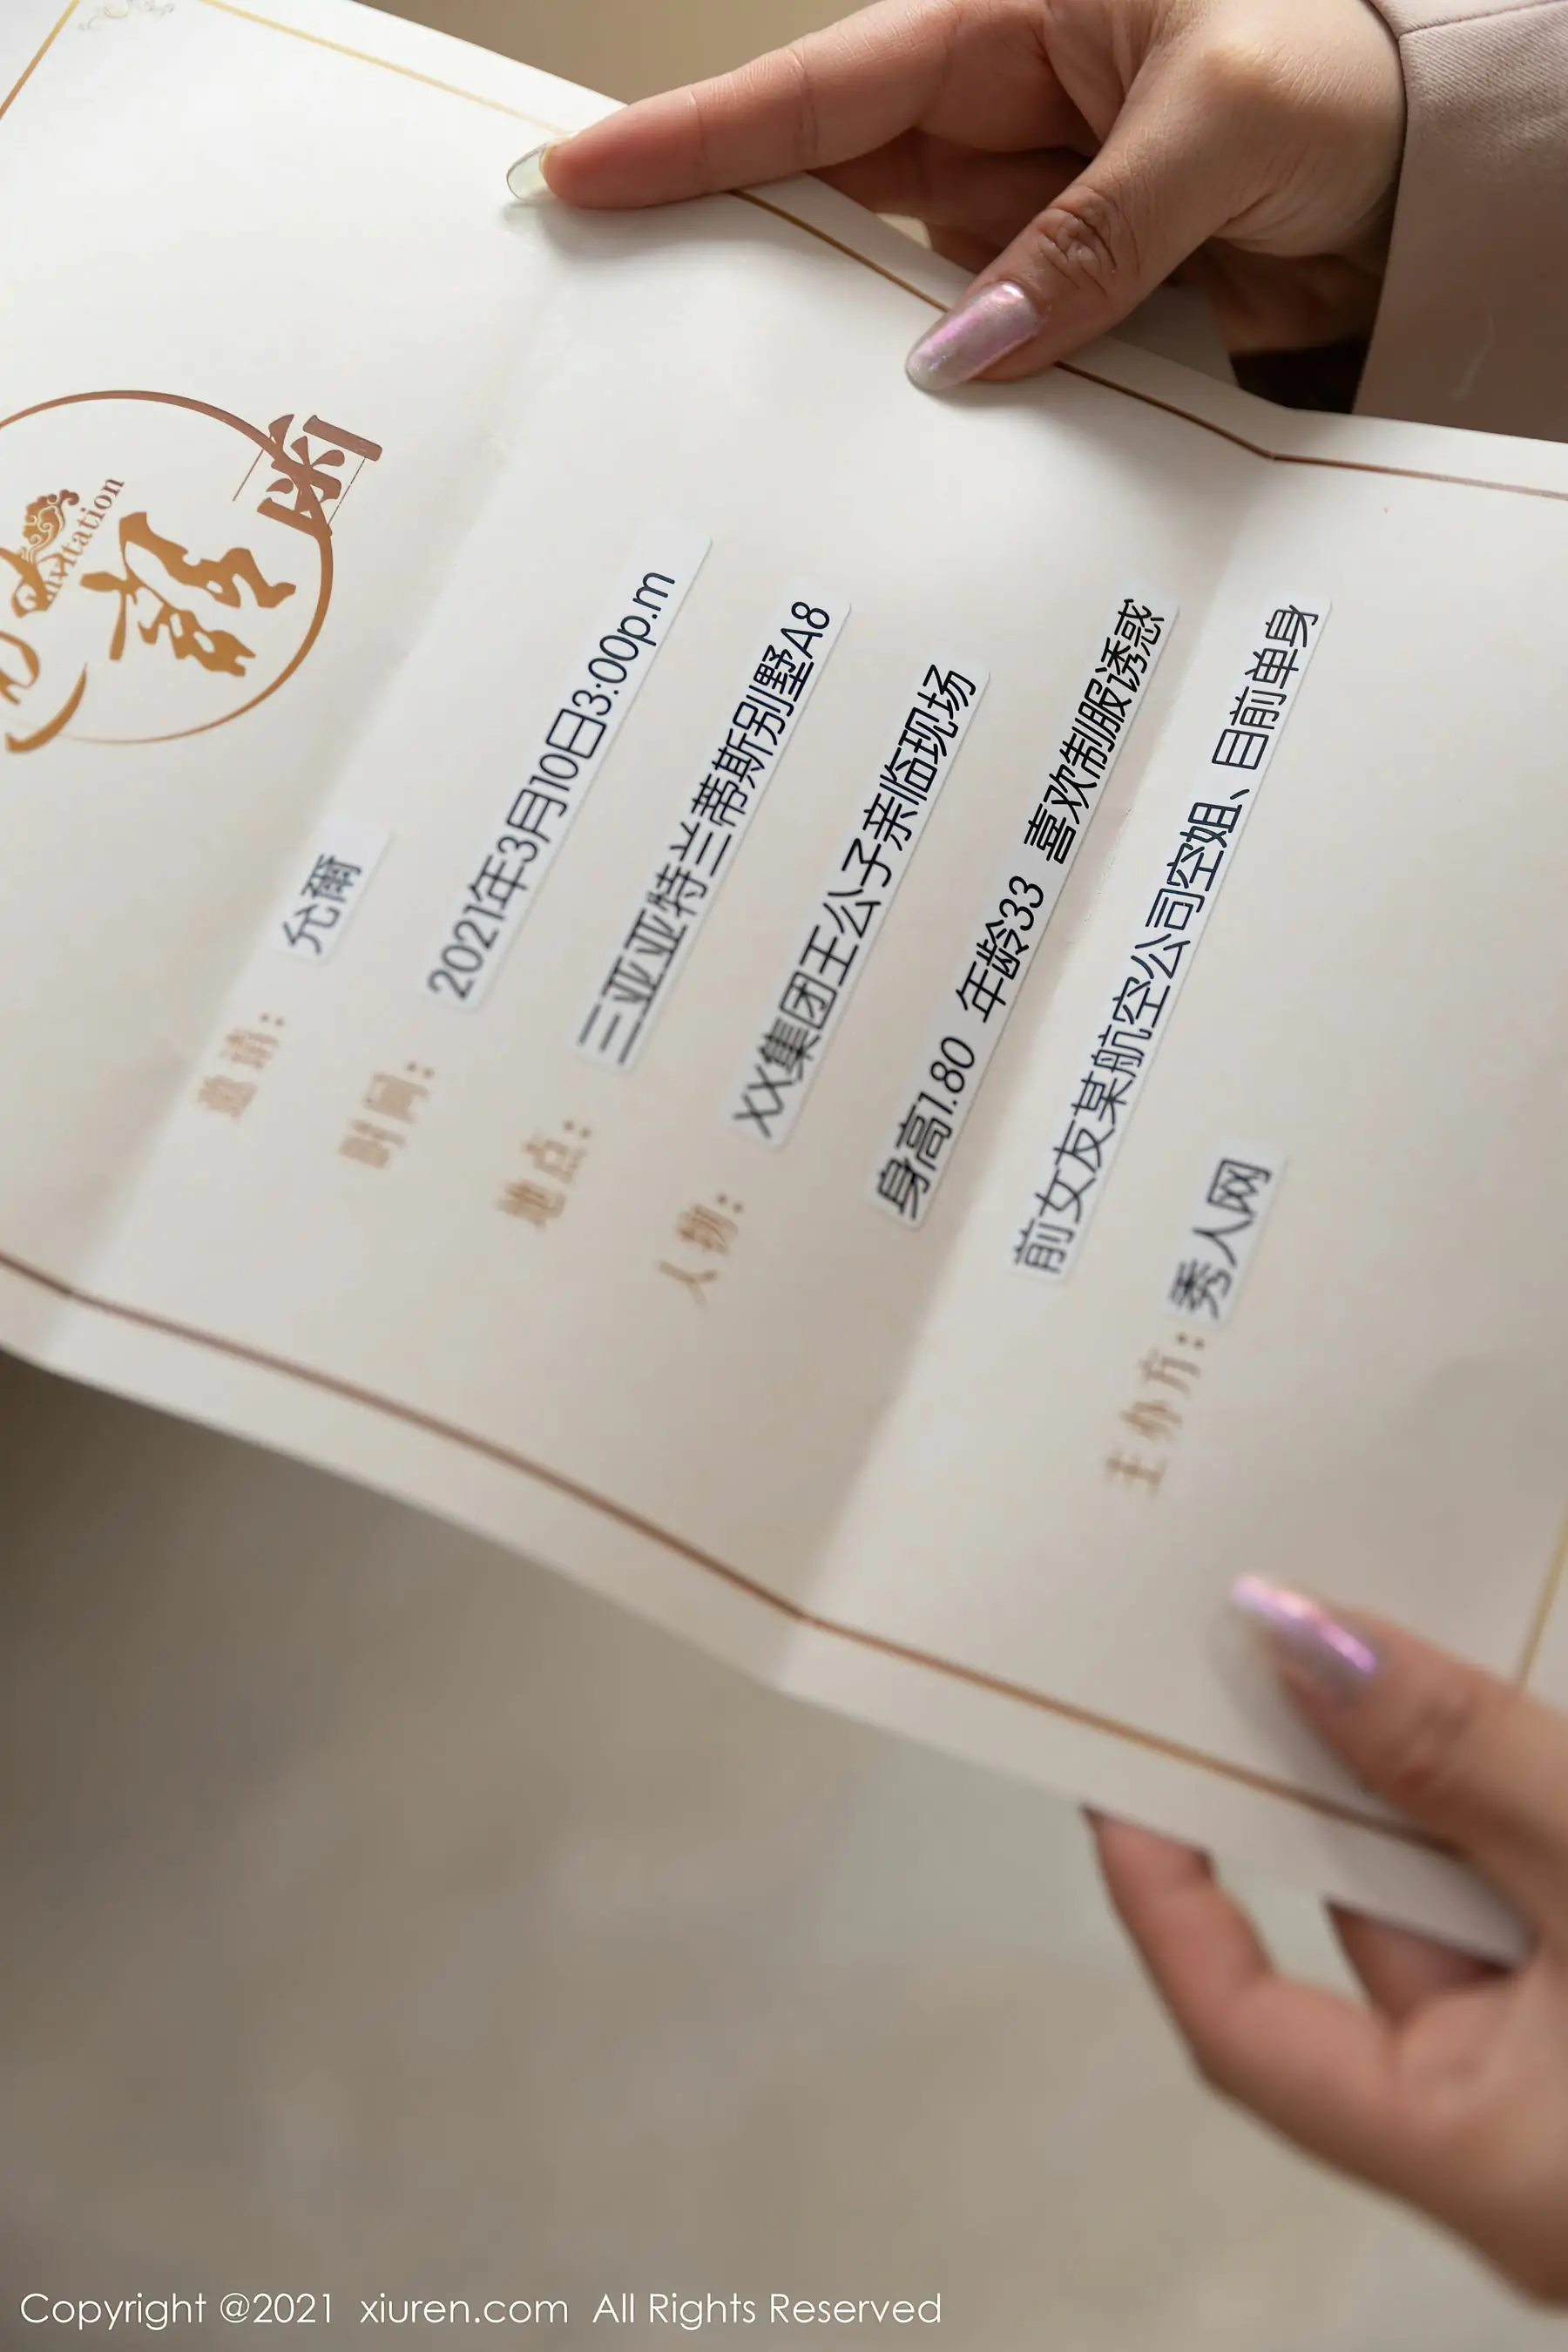 邀请函
invitation
邀请：允爾
时间：2021年3月10日3:00p.m
地点：三亚亚特兰蒂斯别墅A8
人物：XX集团王公子亲临现场
身高1.80 年龄33 喜欢制服诱惑
前女友某航空公司空姐、目前单身
主办方：秀人网
Copyright @2021 xiuren.com All Rights Reserved